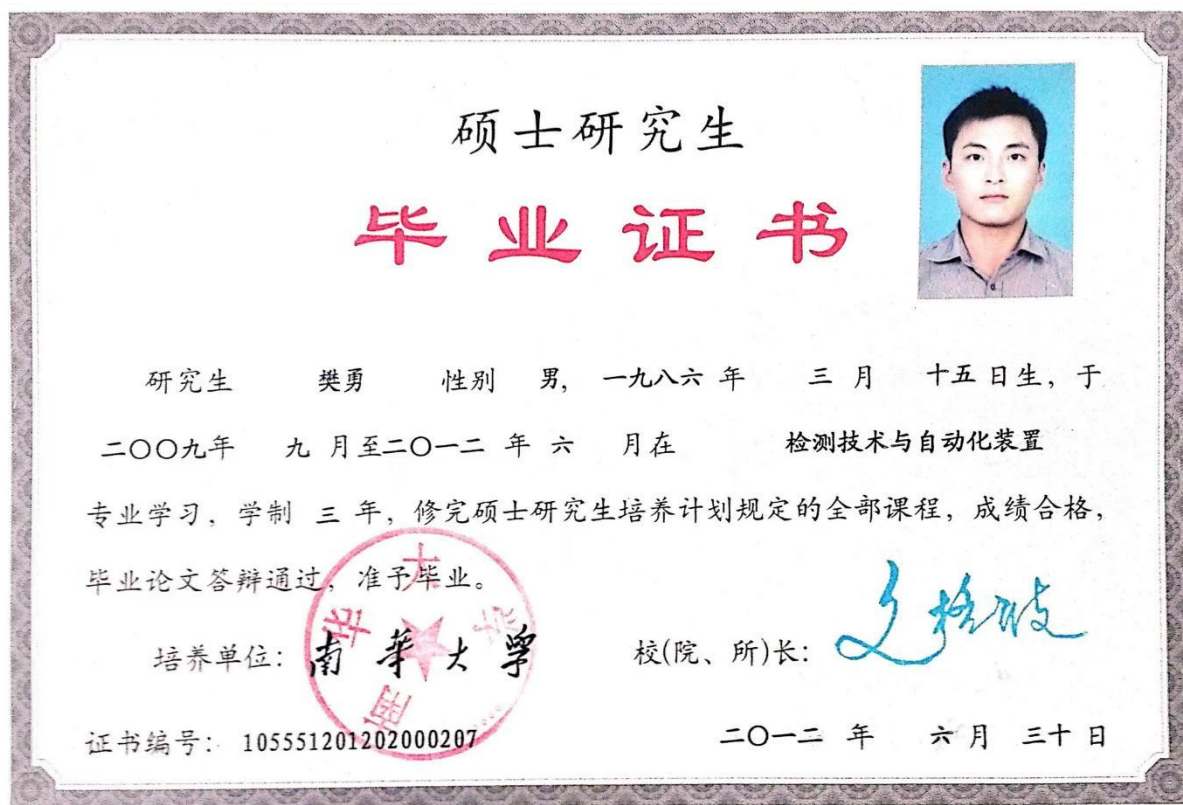 硕士研究生
毕业证书
研究生 樊勇 性别 男, 一九八六 年 三 月 十五 日生, 于
二〇〇九年 九 月至二〇一二 年 六 月在 检测技术与自动化装置
专业学习, 学制 三 年, 修完硕士研究生培养计划规定的全部课程, 成绩合格,
毕业论文答辩通过, 准予毕业。
培养单位: 南華大學 校(院、所)长:
南华大学
证书编号: 105551201202000207 二〇一二 年 六 月 三十 日